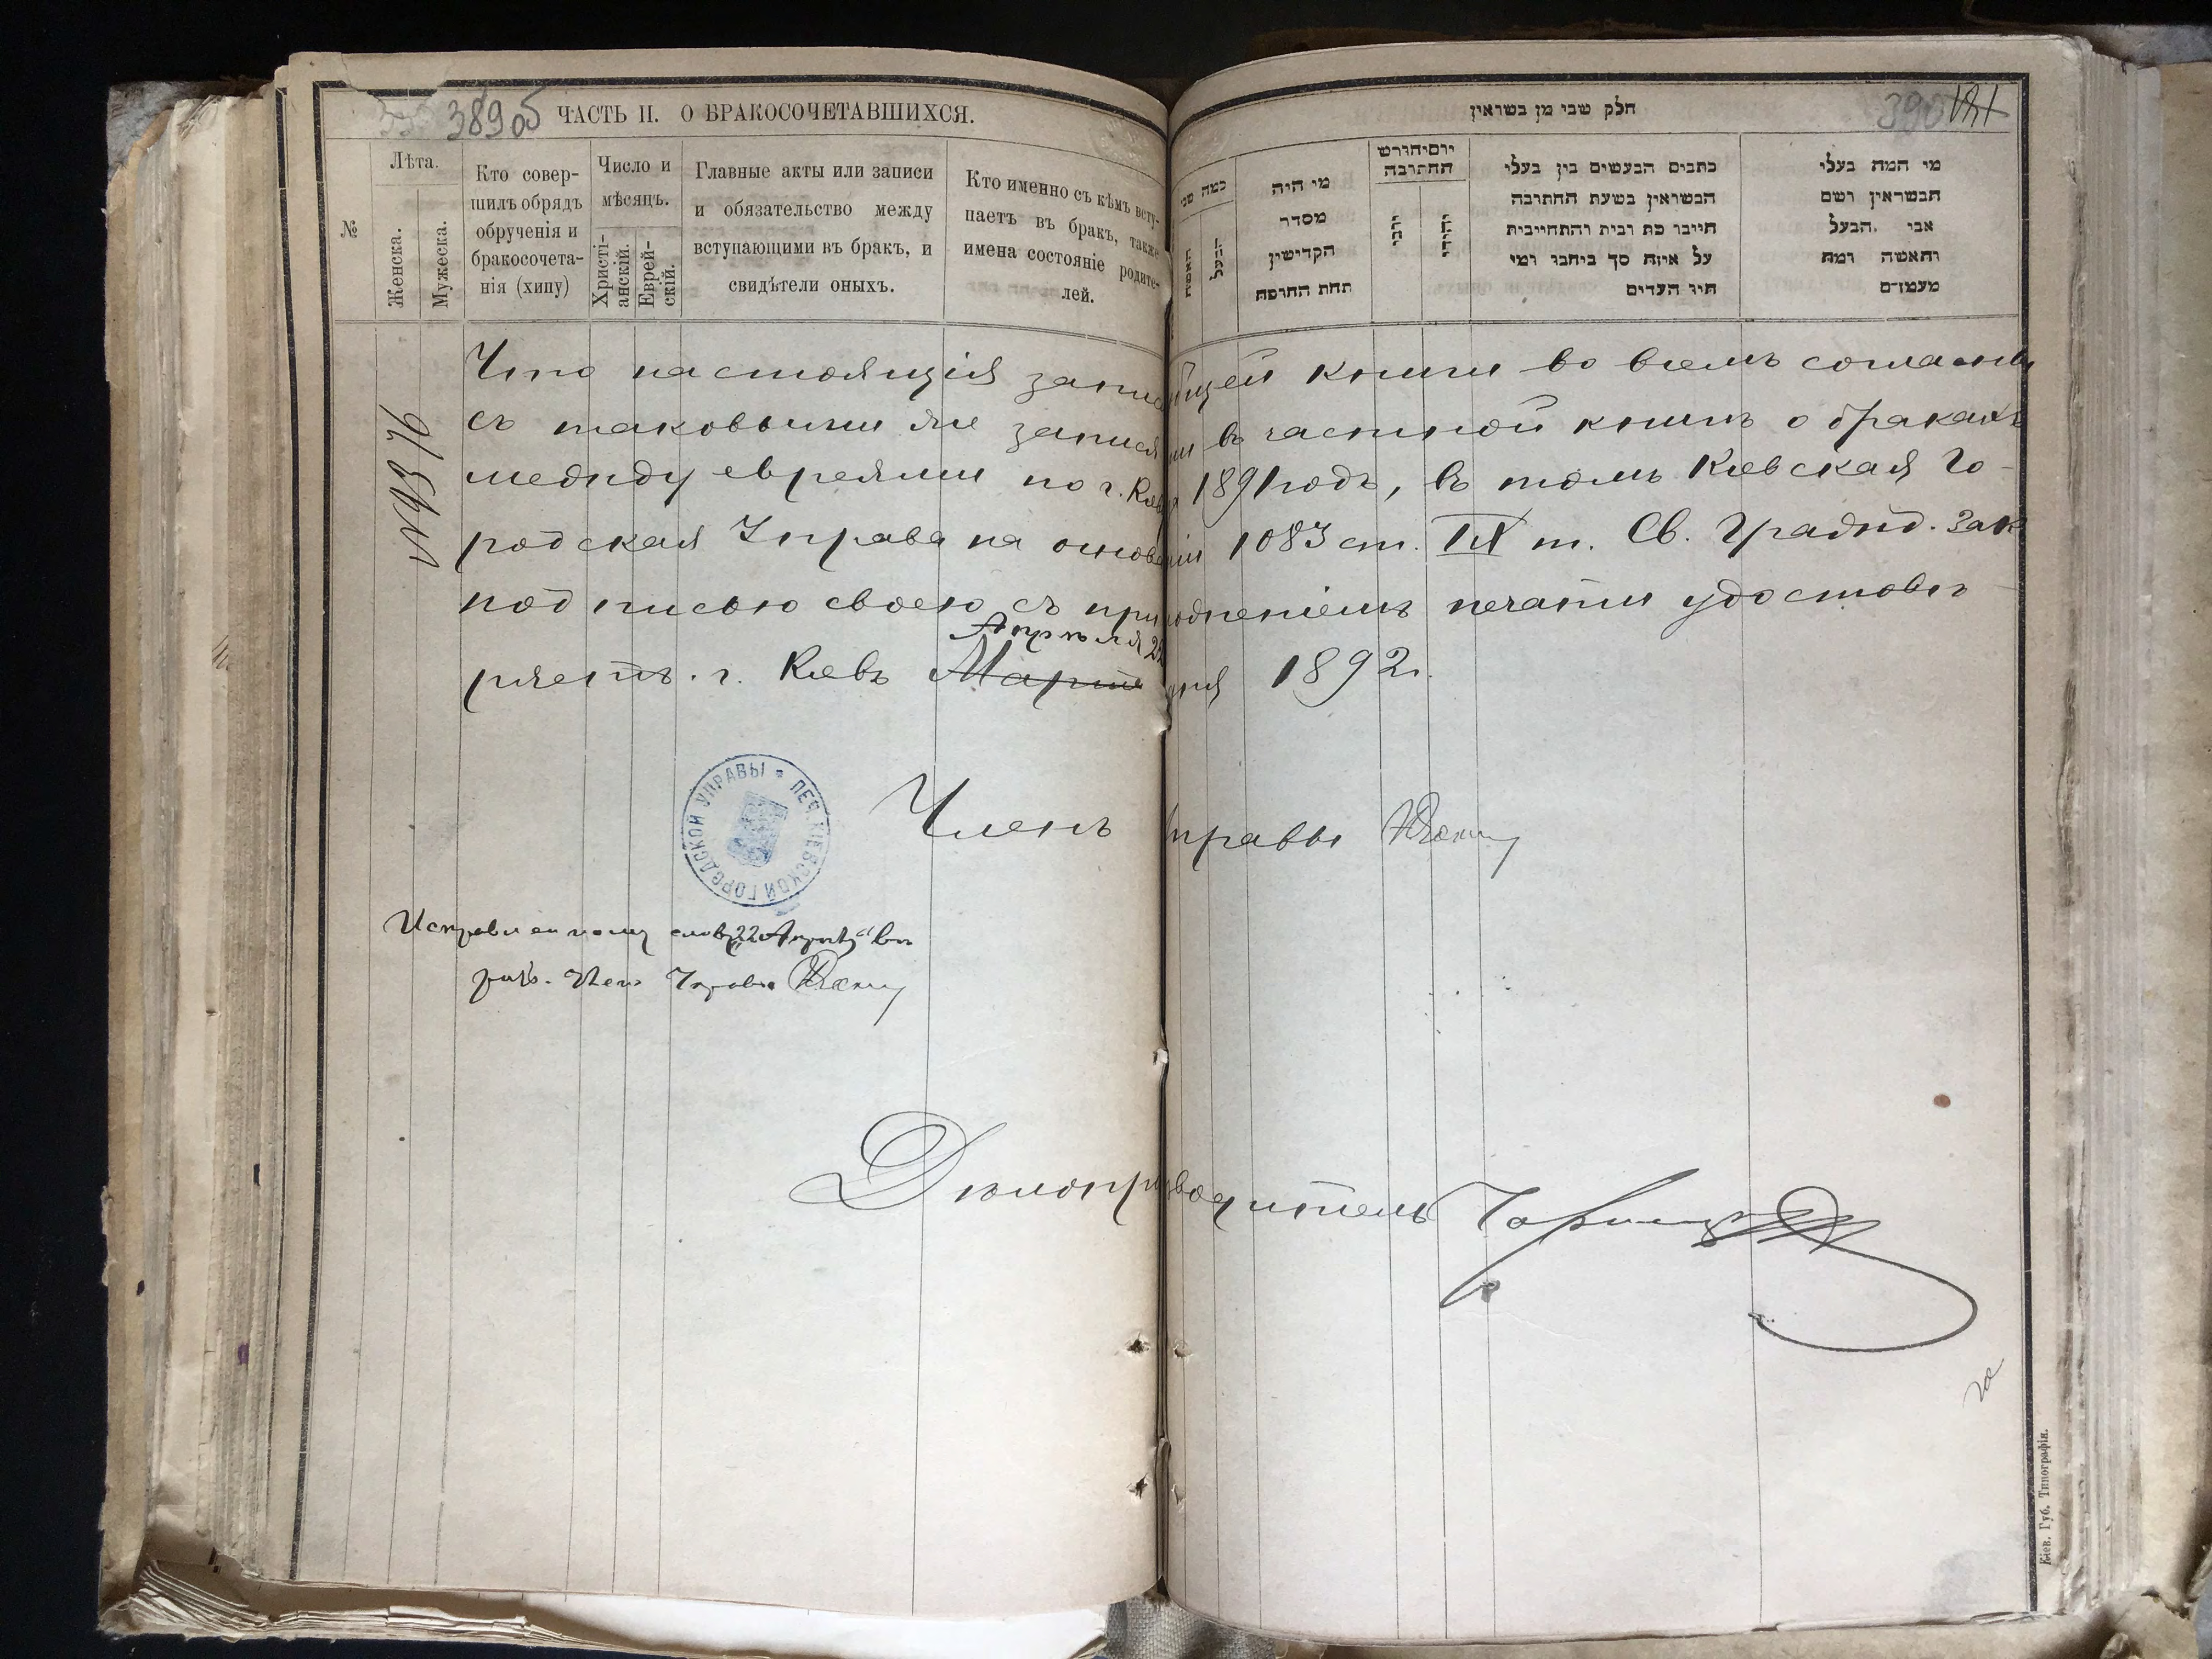 389 об
ЧАСТЬ II. О БРАКОСОЧЕТАВШИХСЯ.
№
Лѣта.
Женска.
Мужеска.
Кто совер-
шилъ обрядъ
обрученія и
бракосочета-
нія (хипу)
Число и
мѣсяцъ.
Христі-
анскій.
Еврей-
скій.
Главные акты или записи
и обязательство между
вступающими въ бракъ, и
свидѣтели оныхъ.
Кто именно съ кѣмъ всту-
паетъ въ бракъ, также
имена состояніе родите-
лей.
חלק שבי מן בשואין
390
מי המה בעלי
הבשואין ושם
אבי הבעל
והאשה ומה
מעמדם
כתבים הבעשים בין בעלי
הבשואין בשעת החתובה
חייבו כת ובית והתחייבית
על איזה סך ביחבו ומי
היו העדים
יום והודש
החתובה
יהודי
מי היה
מסדר
הקדישין
תחת החופה
כמה שבי
הבעל
האשה
№ 9376
Что настоящія записи общей книги во всемъ согласны
съ таковыми же записями въ частной книгѣ о бракахъ
между евреями по г. Кіеву 1891 годъ, въ томъ Кіевская Го-
родская Управа на основаніи 1083 ст. IX т. Св. Гражд. Зак
подписью своею съ приложеніемъ печати удостовѣ-
Апрѣля 22
ряетъ. г. Кіевъ Марта дня 1892 г.
ПЕЧ. КІЕВСКОЙ ГОРОДСКОЙ УПРАВЫ
Членъ Управы
Исправленному слову „22 Апрѣля" вѣ-
рить. Членъ Управы
Дѣлопроизводитель
Кіев. Губ. Типографія.